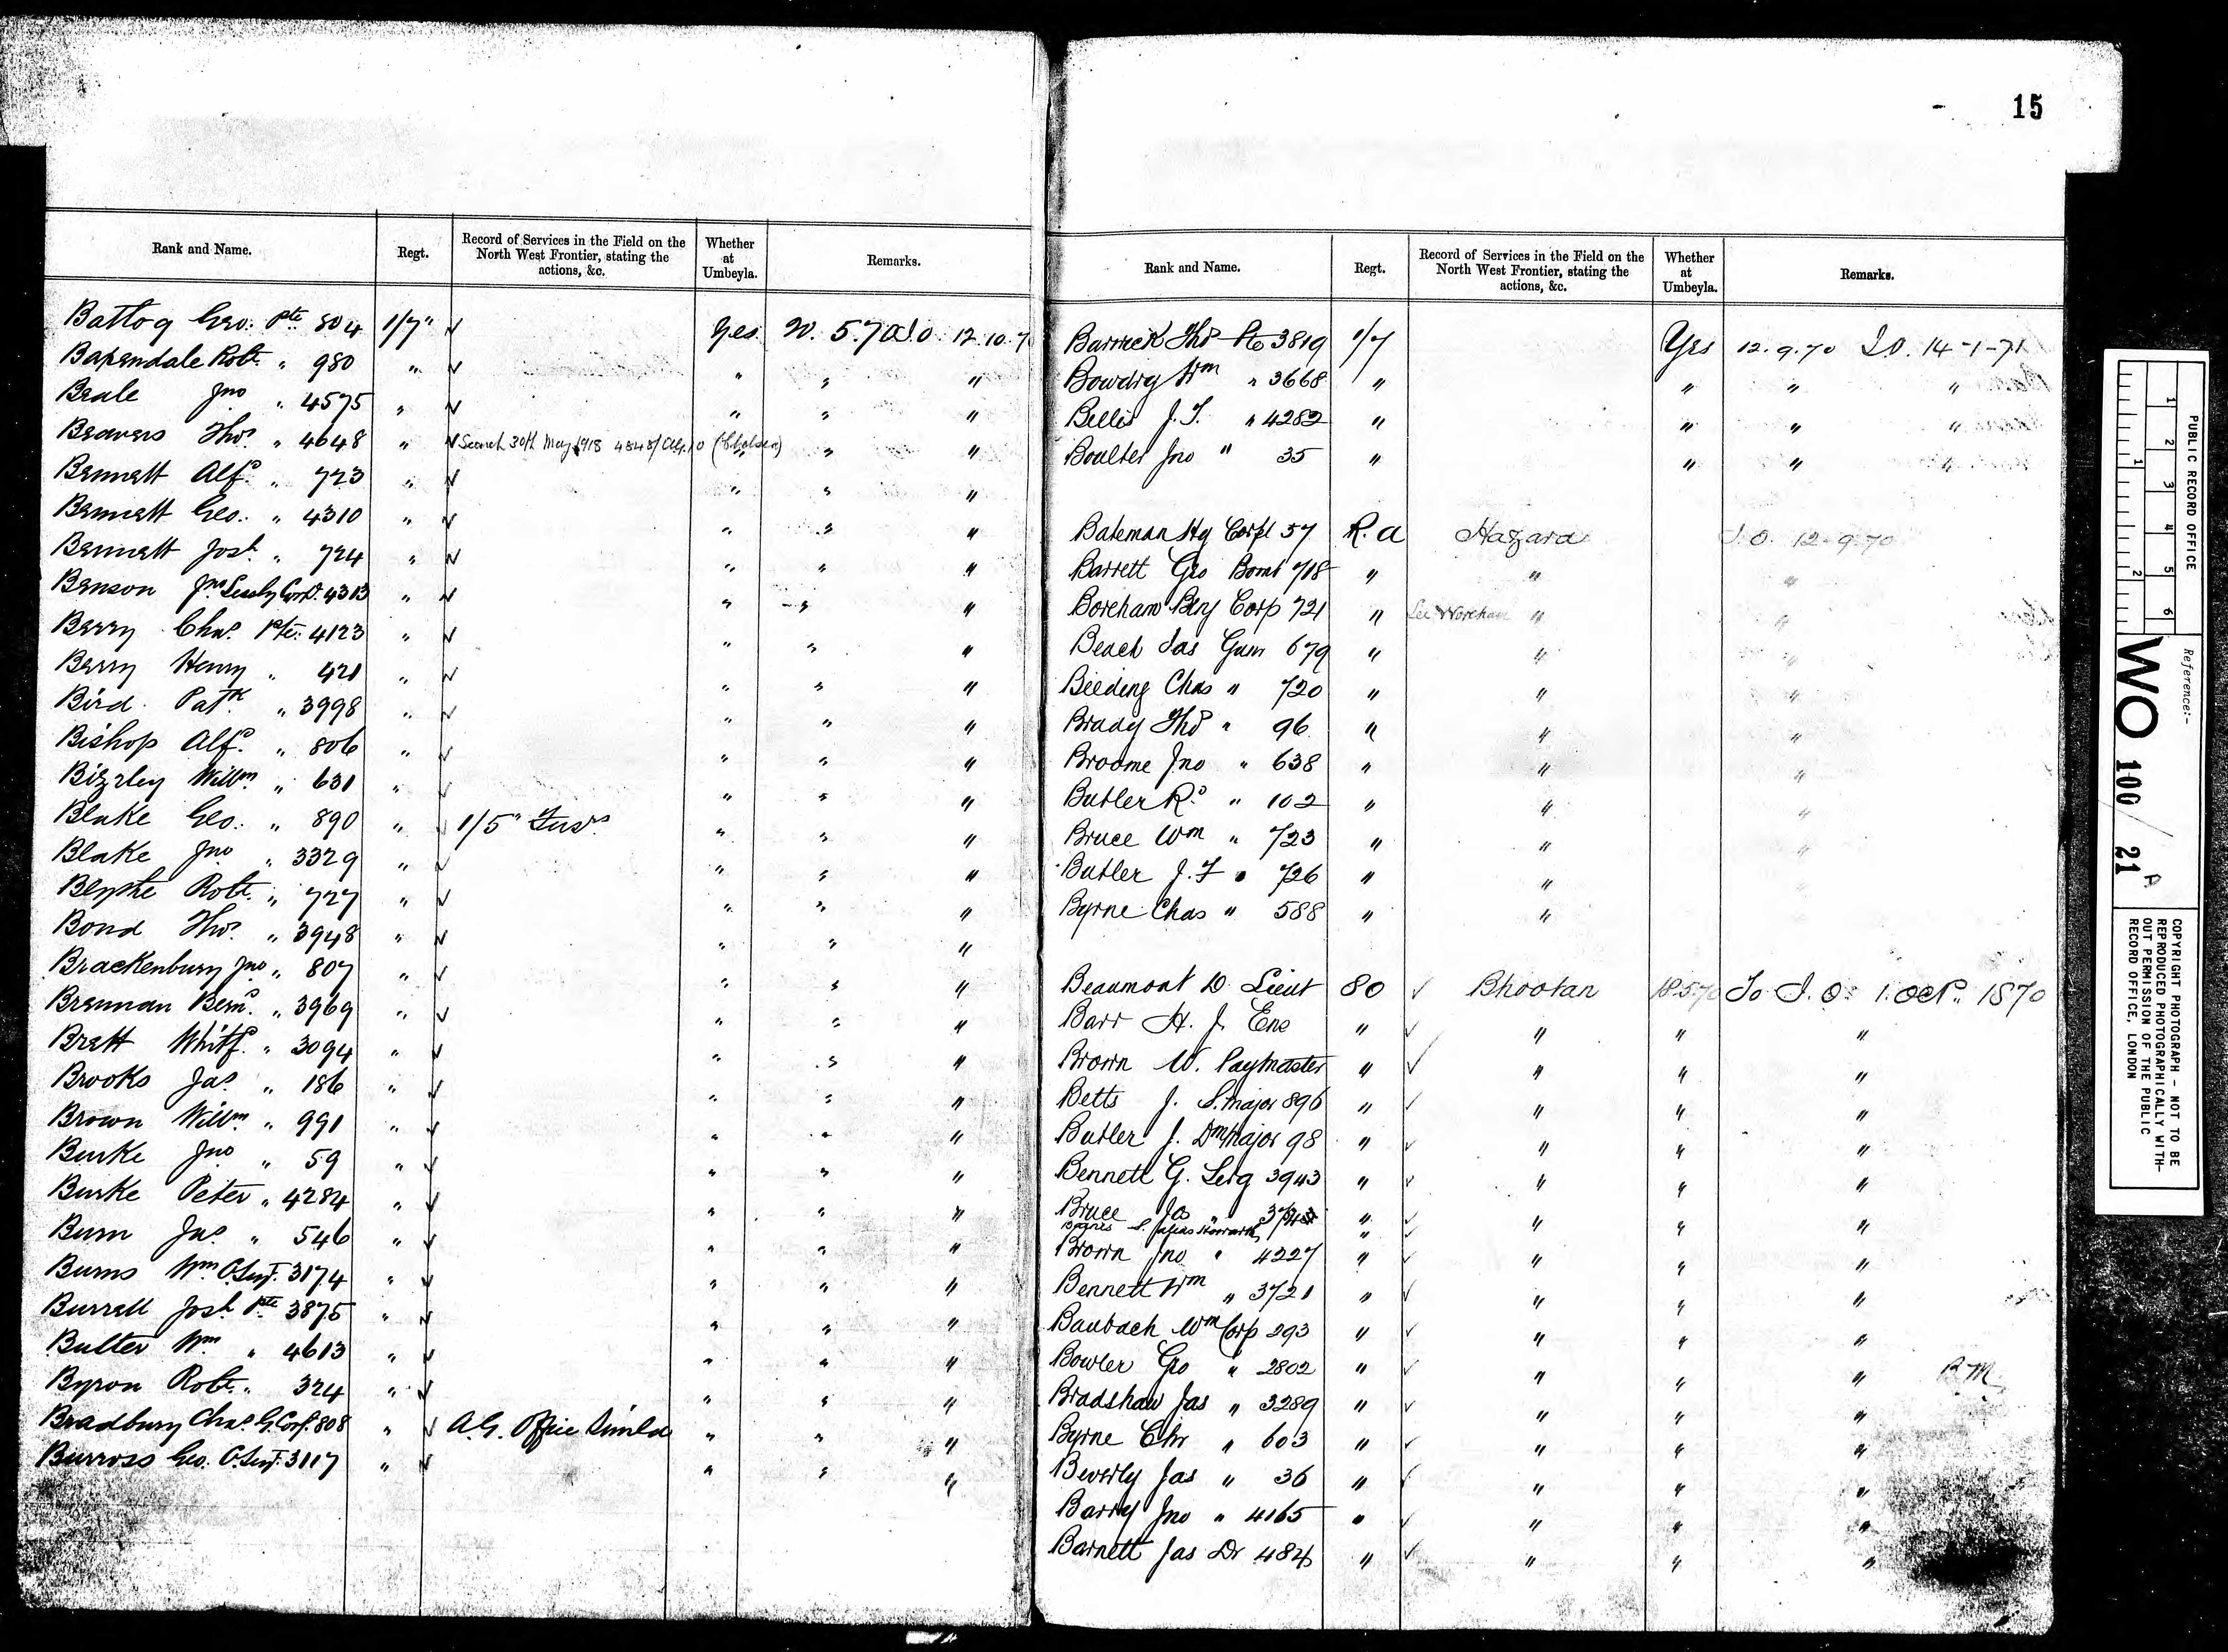 15
Rank and Name. Regt. Record of Services in the Field on the North West Frontier, stating the actions, &c. Whether at Umbeyla. Remarks.
Geo: Pte 804 1/7" Yes 12.10.7
Baxendale Robt. " 980 " " " "
Beale Jno " 4575 " " " "
Beavers Thos. " 4648 " Search 30th May 1918 (Chelsea) " " "
Bennett Alfd. " 723 " " " "
Bennett Geo. " 4310 " " " "
Bennett Josh. " 724 " " " "
Benson Jno 4313 " " " "
Berry Chas. Pte. 4123 " " " "
Berry Henry " 421 " " " "
Bird Patk " 3998 " " " "
Bishop Alfd. " 806 " " " "
Bizley Willm. " 631 " " " "
Blake Geo. " 890 " 1/5" Fusrs. " " "
Blake Jno " 3329 " " " "
Blythe Robt. " 727 " " " "
Bond Thos. " 3948 " " " "
Brackenbury Jno " 807 " " " "
Brennan Bernd. " 3969 " " " "
Brett Whitfd. " 3094 " " " "
Brooks Jas. " 186 " " " "
Brown Willm. " 991 " " " "
Burke Jno " 59 " " " "
Burke Peter " 4284 " " " "
Burn Jas. " 546 " " " "
Burns Wm C. Serjt. 3174 " " " "
Burrell Josh. Pte 3875 " " " "
Butter Wm " 4613 " " " "
Byron Robt. " 324 " " " "
Bradbury Chas. 808 " A.G. Office Simla " " "
Burross Geo. C. Serjt. 3117 " " " "
Rank and Name. Regt. Record of Services in the Field on the North West Frontier, stating the actions, &c. Whether at Umbeyla. Remarks.
Barrick Thos Pte 3819 1/7 Yes 12.9.70 I.O. 14-1-71
Bowdry Wm " 3668 " " " "
Bellis J. T. " 4282 " " " "
Boulter Jno " 35 " " " "
Bateman Hy Corpl 57 R.A Hazara I.O. 12.9.70
Barrett Geo Bomb 718 " " "
Boreham Benj Corp 721 " See Woreham " "
Beach Jas Gunr 679 " " "
Beeding Chas " 720 " " "
Brady Thos " 96 " " "
Broome Jno " 638 " " "
Butler Rd " 102 " " "
Bruce Wm " 723 " " "
Butler J. F " 726 " " "
Byrne Chas " 588 " "
Beaumont D Lieut 80 Bhootan 18.5.70 To I.O. 1. Oct. 1870
Barr H. J. Ens " " " "
Brown W. Paymaster " " " "
Betts J. S. Major 896 " " " "
Butler J. Dm Major 98 " " " "
Bennett G. Serg 3943 " " " "
Bruce Ja " " " " "
S. Julias "
Brown Jno " 4227 " " " "
Bennett Wm " 3721 " " " "
Baubach Wm Corp 293 " " " "
Bowler Geo " 2802 " " " " B.M.
Bradshaw Jas " 3289 " " " "
Byrne Chr " 603 " " " "
Beverly Jas " 36 " " " "
Barry Jno " 4165 " " " "
Barnett Jas Dr 484 " " " "
PUBLIC RECORD OFFICE
1 2 3 4 5 6
1 2
Reference:-
WO 100 / 21 P
COPYRIGHT PHOTOGRAPH - NOT TO BE
REPRODUCED PHOTOGRAPHICALLY WITH-
OUT PERMISSION OF THE PUBLIC
RECORD OFFICE, LONDON